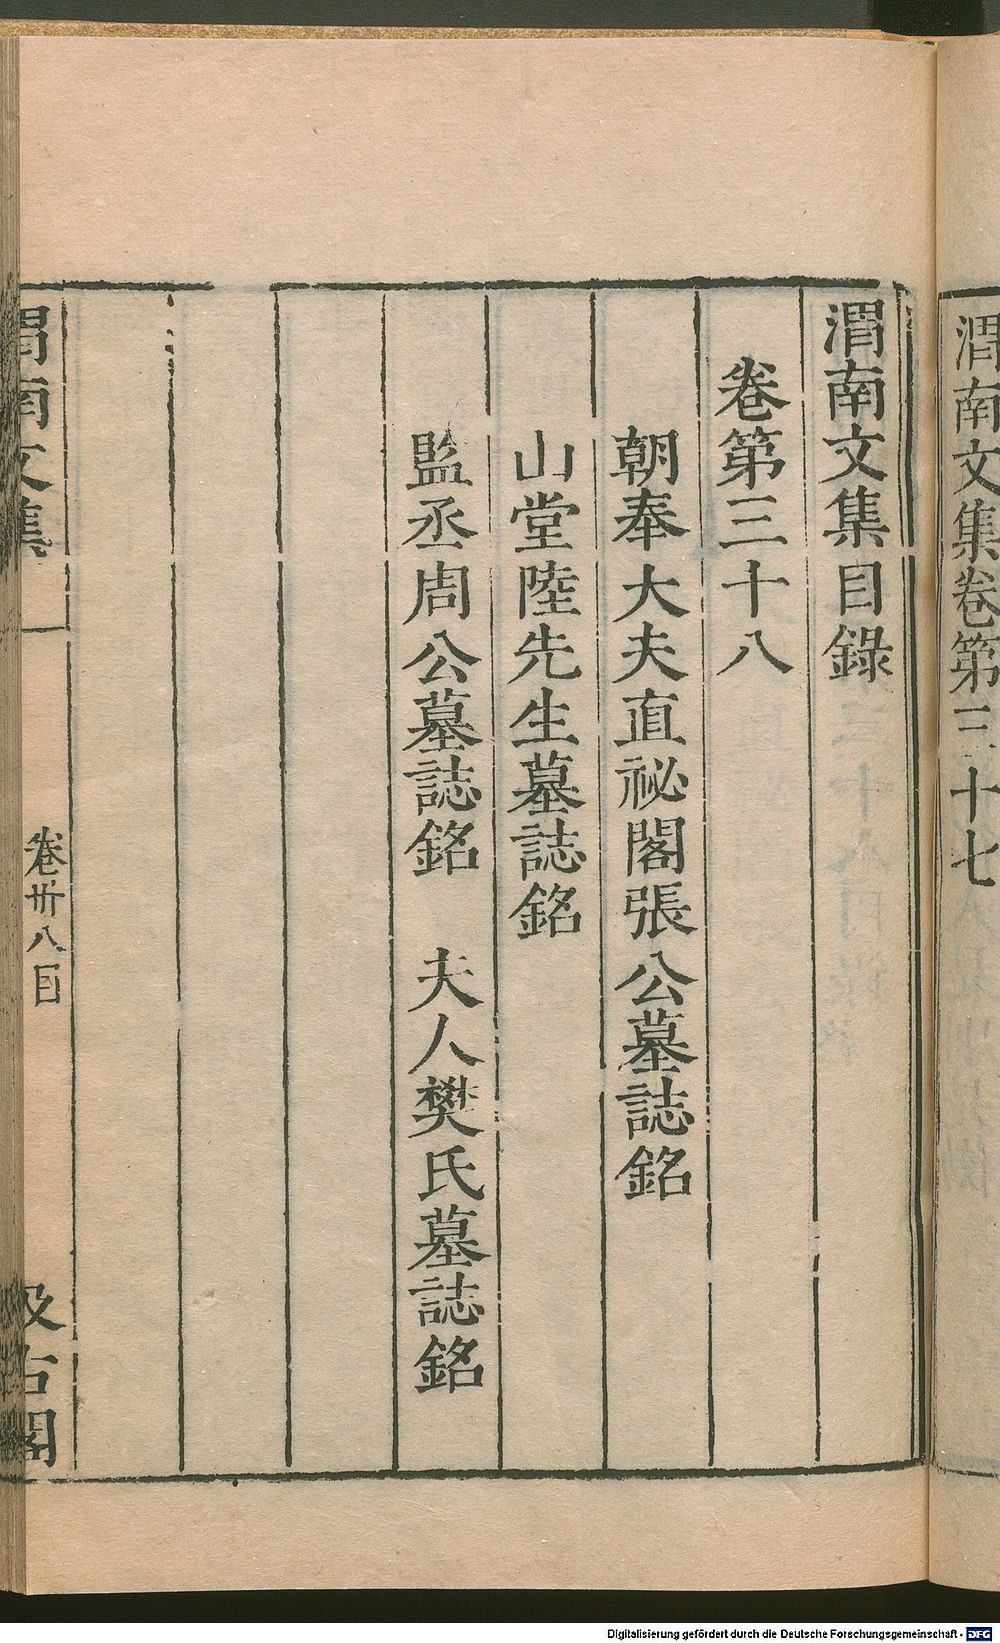 渭南文集卷第三十七
渭南文集目錄
卷第三十八
朝奉大夫直祕閣張公墓誌銘
山堂陸先生墓誌銘
監丞周公墓誌銘　夫人樊氏墓誌銘
渭南文集
卷卅八目
汲古閣
Digitalisierung gefördert durch die Deutsche Forschungsgemeinschaft - DFG